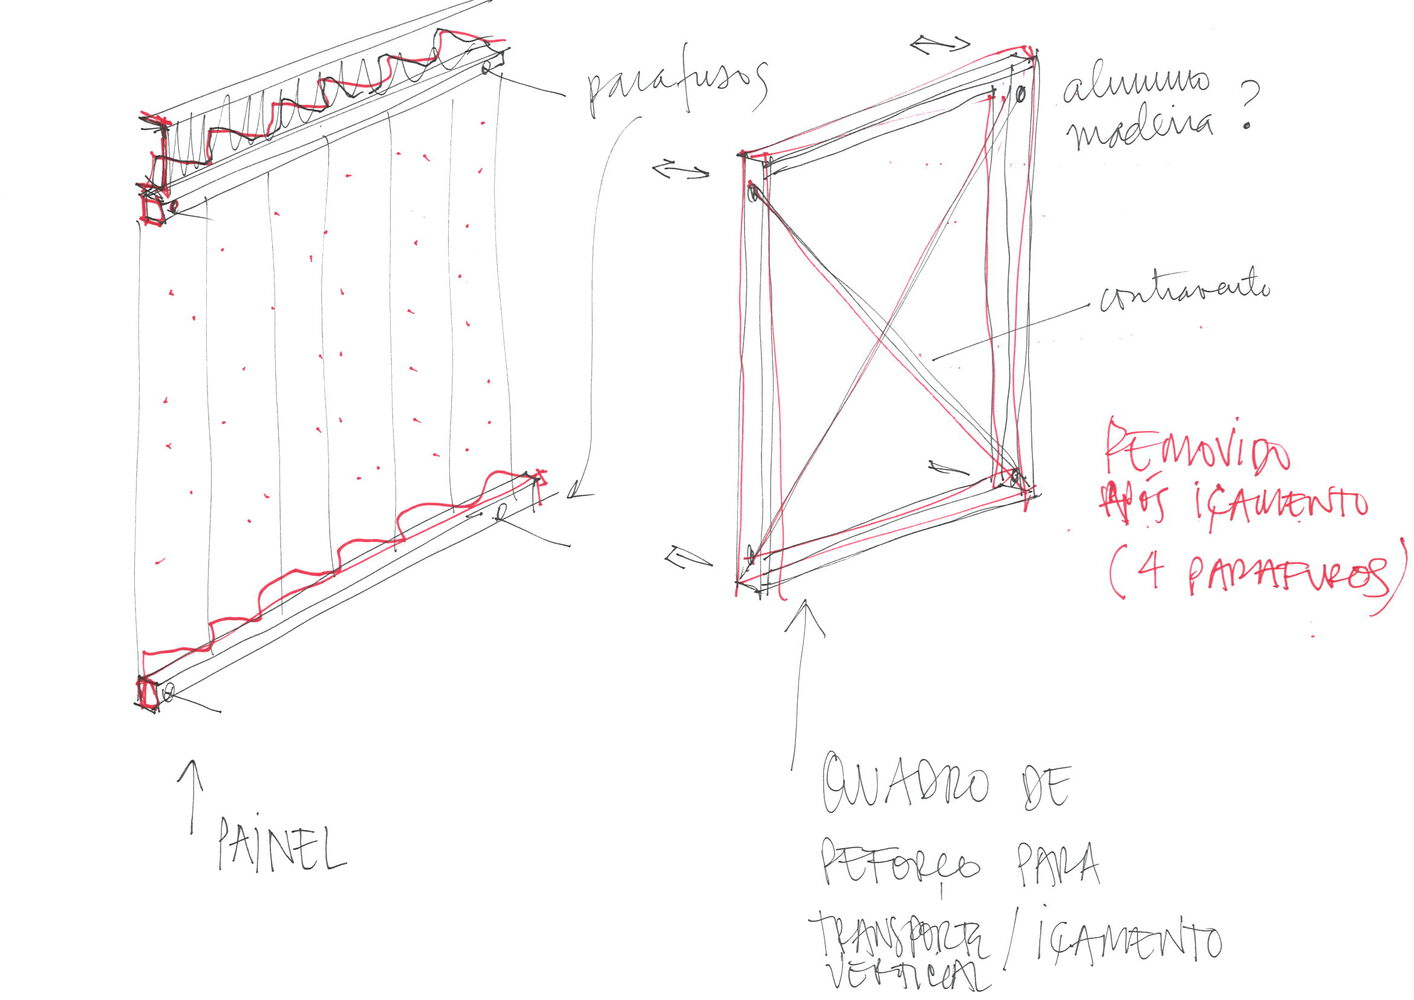 parafusos
alumino
madeira ?
contravento
REMOVIDO
APÓS IÇAMENTO
(4 PARAFUROS)
PAINEL
QUADRO DE
REFORÇO PARA
TRANSPORTE / IÇAMENTO
VERTICAL